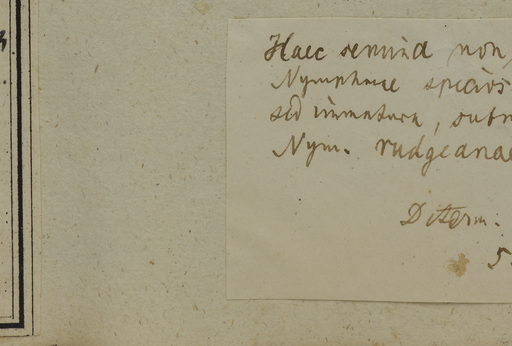 Haec semina non,
Nymphaeae specios
sed immatura, subm
Nym. rudgeanae
Determ.
5